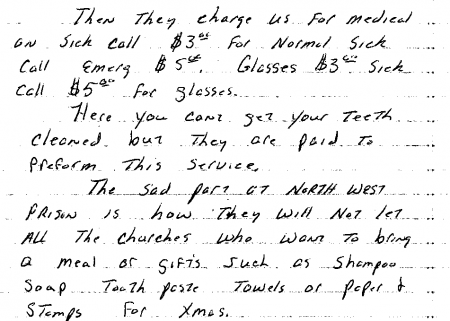 Then They charge us for medical
on Sick Call $3.00 For Normal Sick
Call Emerg $5.00. Glasses $3.00 Sick
Call $5.00 For glasses.
Here you cant get your Teeth
cleaned but They are paid To
Preform This Service.
The Sad part at North West
Prison is how They will Not let
All The churches who want To bring
a meal or gifts such as Shampoo
Soap Tooth paste Towels or Paper &
Stamps For Xmas.